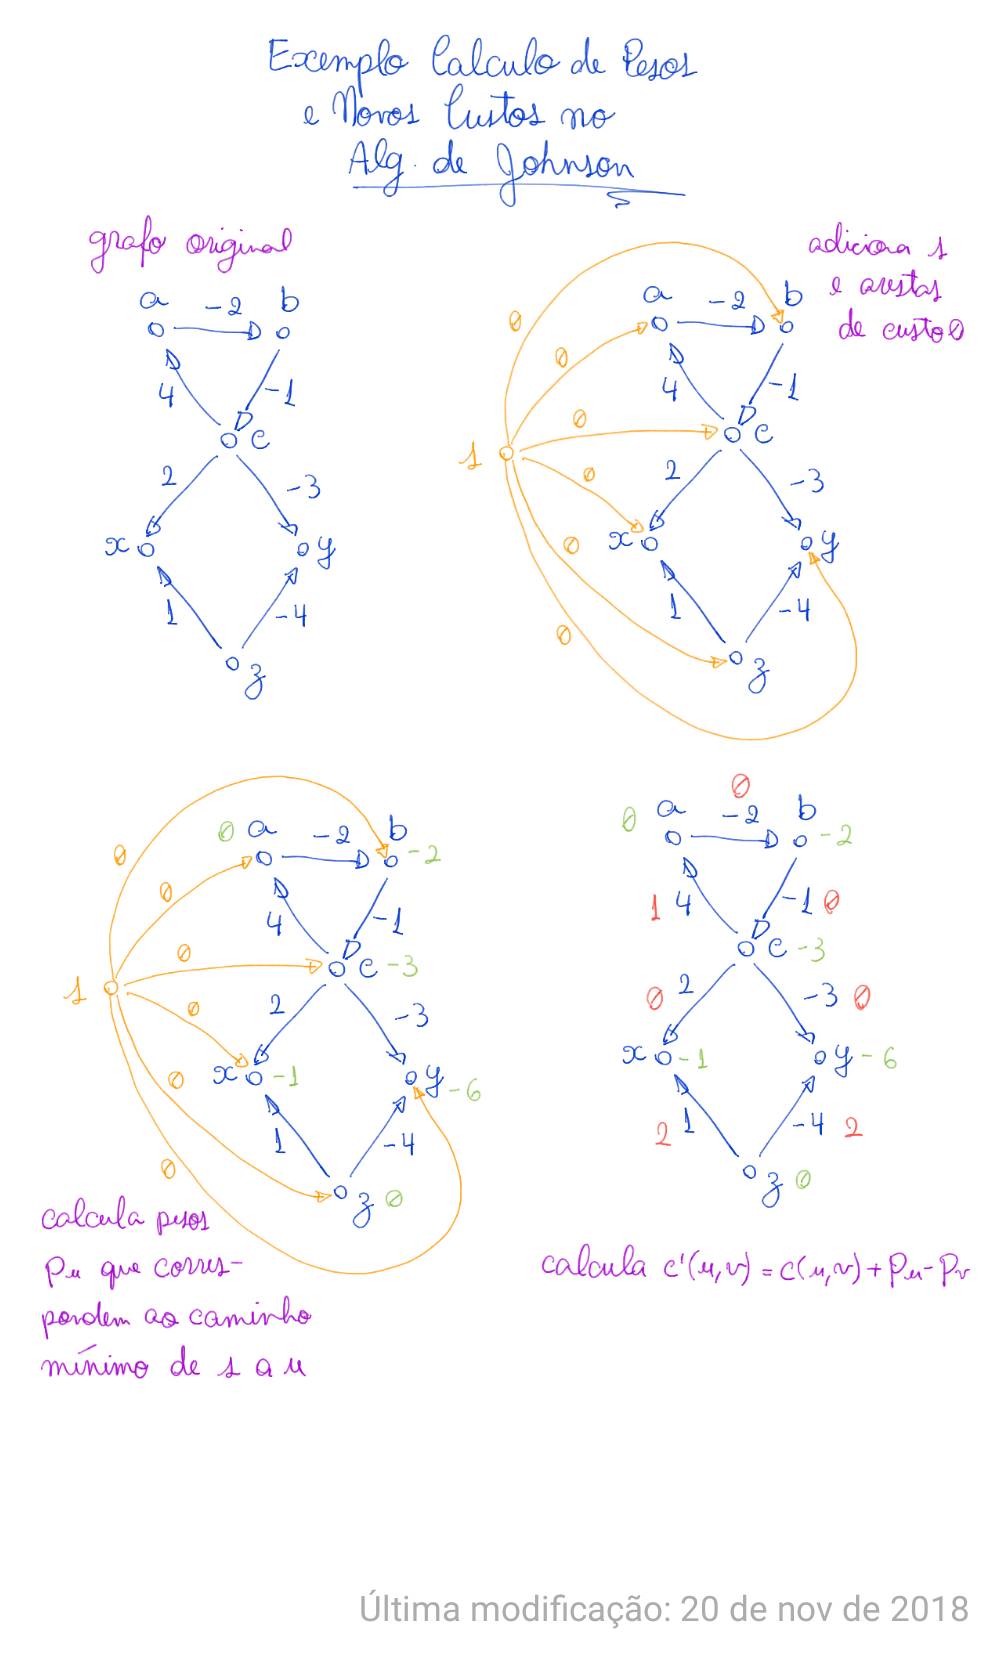 Exemplo Calculo de Pesos
e Novos Custos no
Alg. de Johnson
grafo original
a -2 b
4 -1
c
2 -3
x y
1 -4
z
adiciona s
e arestas
de custo 0
a -2 b
0
0 4 -1
0 c
s
0 2 -3
0 x y
1 -4
0
z
0 a -2 b -2
0
0 4 -1
0 c -3
s
0 2 -3
0 x -1 y -6
1 -4
0
z 0
calcula pesos
Pu que corres-
pondem ao caminho
mínimo de s a u
0
0 a -2 b -2
1 4 -1 0
c -3
0 2 -3 0
x -1 y -6
2 1 -4 2
z 0
calcula c'(u,v) = c(u,v) + Pu - Pv
Última modificação: 20 de nov de 2018